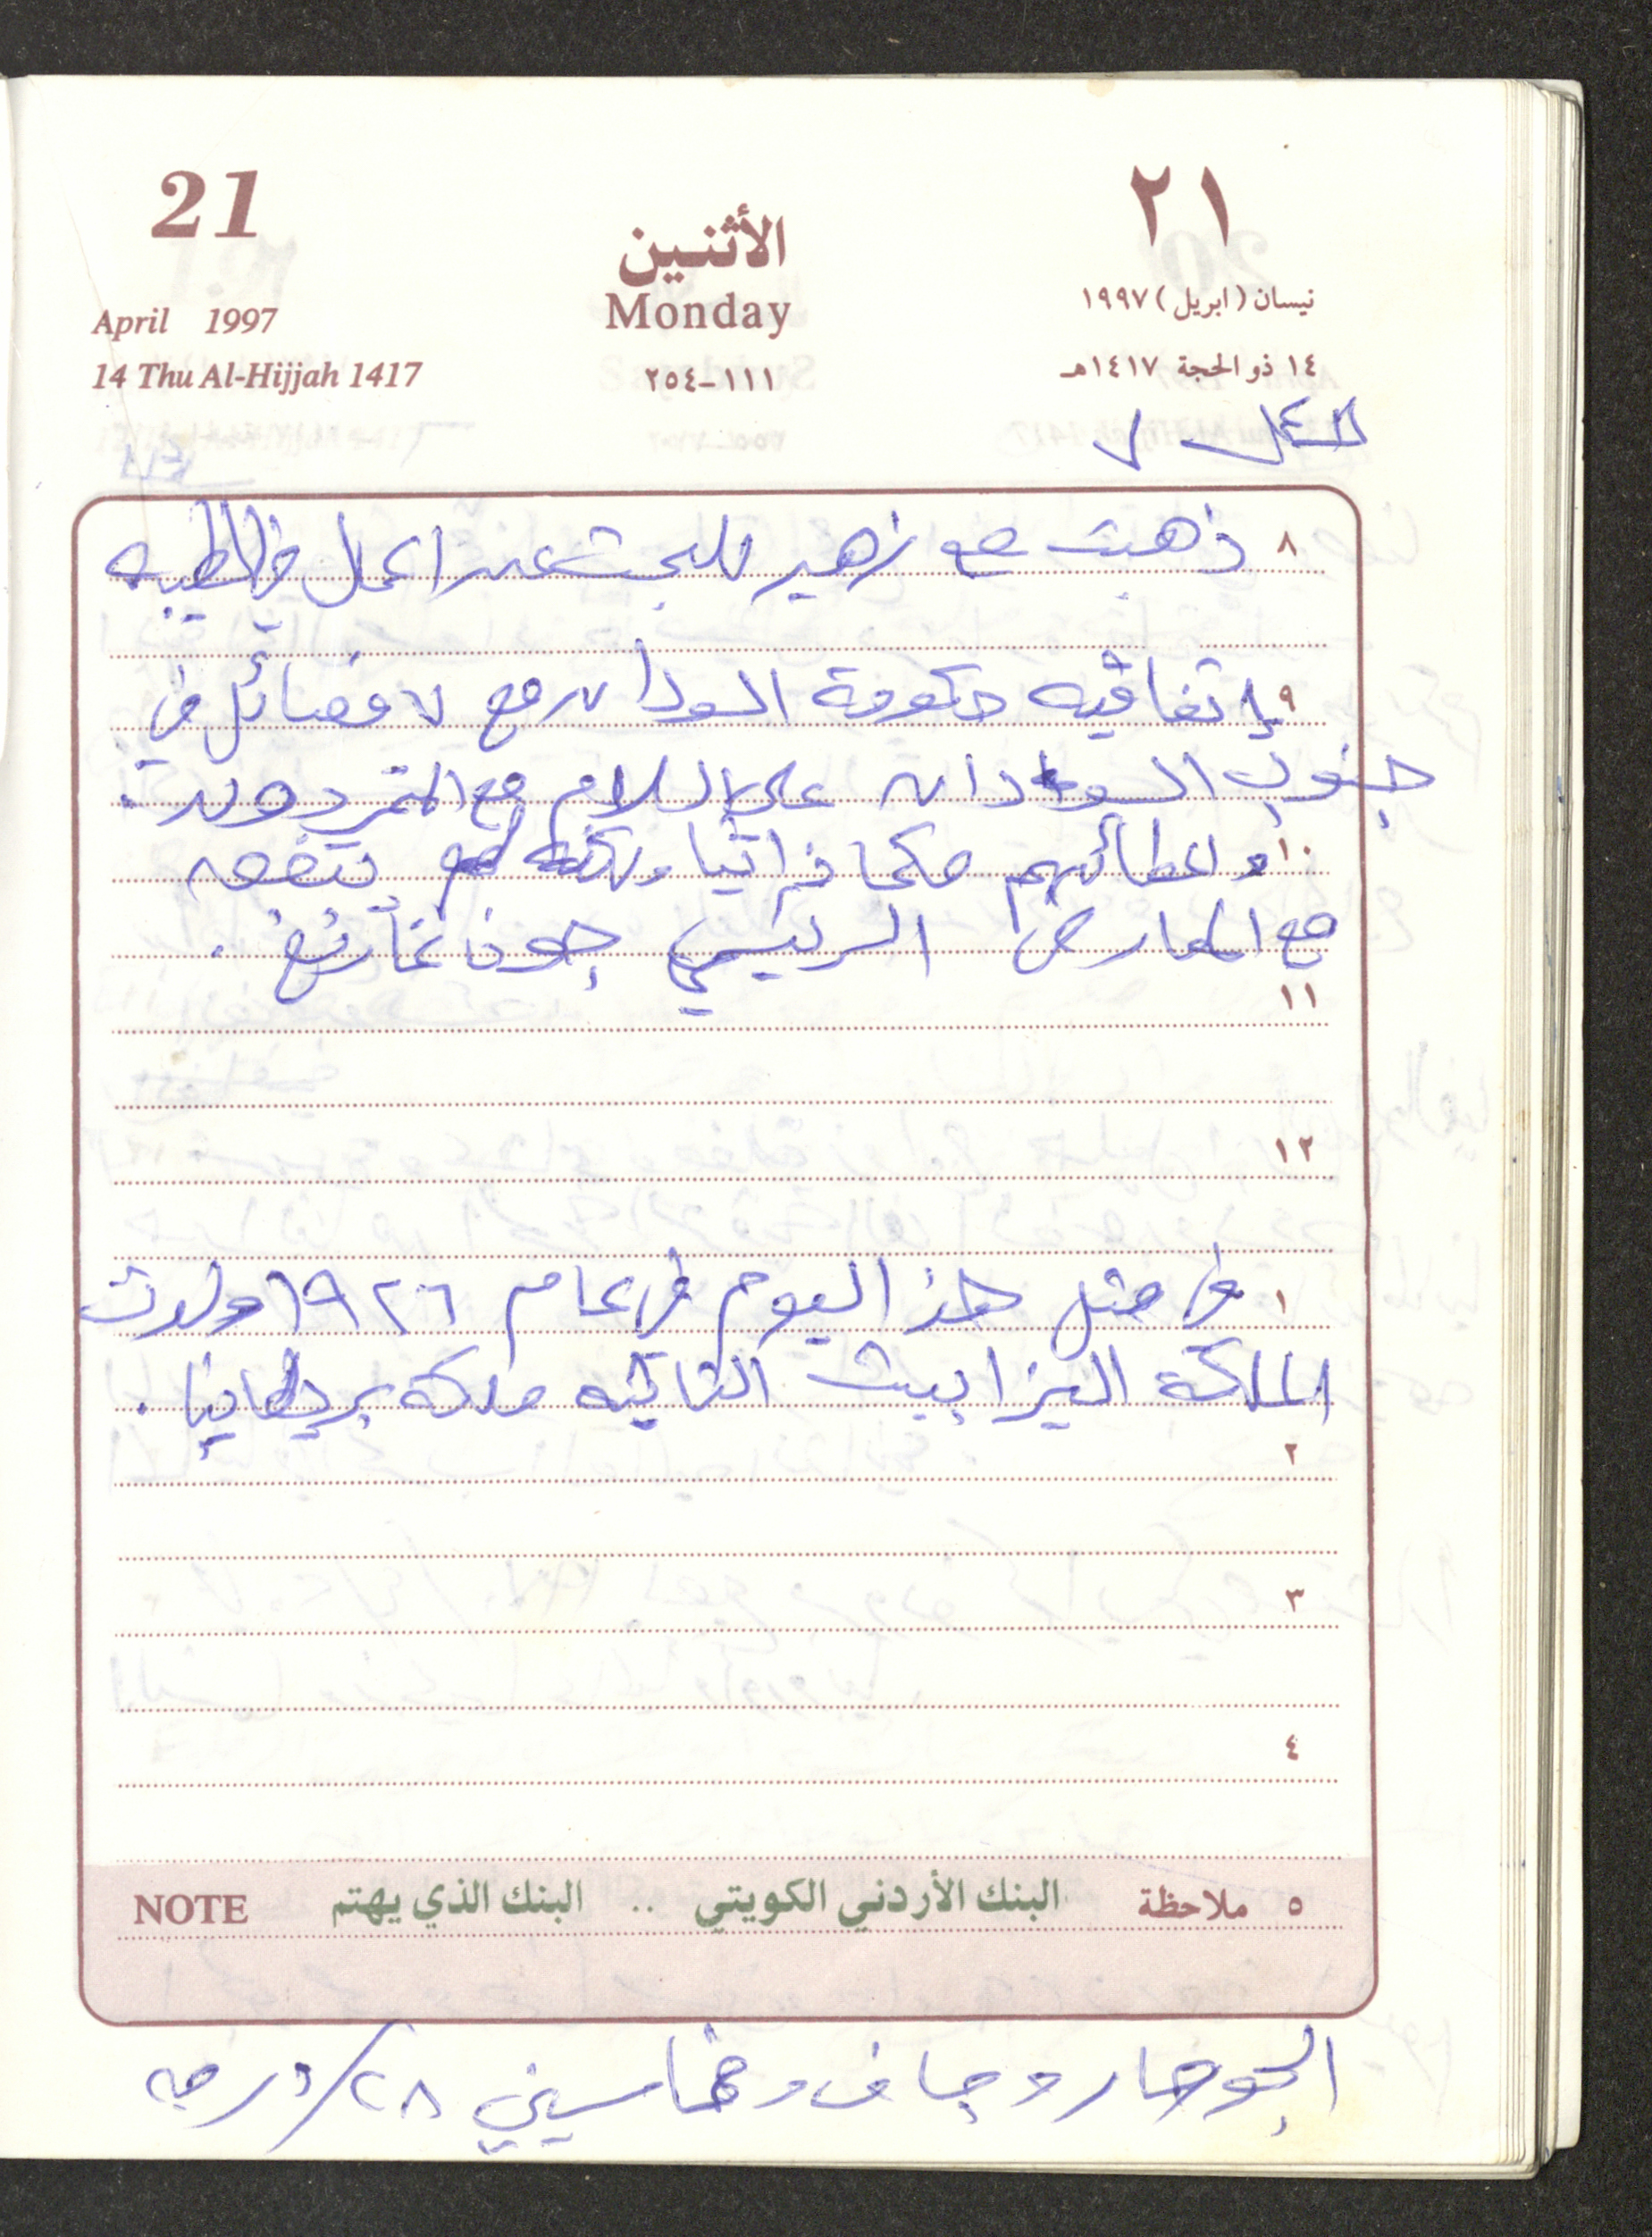 21
٢١
الأثنين
Monday
April 1997
نيسان (ابريل) ١٩٩٧
14 Thu Al-Hijjah 1417
١١١-٢٥٤
١٤ ذو الحجة ١٤١٧هـ
٨ ذهبت مع زهير للبحث عن اعمال في الطيبه
٩ إتفاقيه حكومة السودان مع ٧ فصائل في
جنوب السودان على السلام مع المتمردون.
١٠ واعطائهم حكما ذاتيا ولكنه لم يتفق
مع المعارض الرئيسي جون غارنغ.
١١
١٢
١ في مثل هذا اليوم في عام ١٩٢٦ ولدت
الملكة اليزابيث الثانيه ملكه بريطانيا.
٢
٣
٤
٥ ملاحظة البنك الأردني الكويتي .. البنك الذي يهتم NOTE
الجو حار وجاف وخماسيني ٢٨/درجه